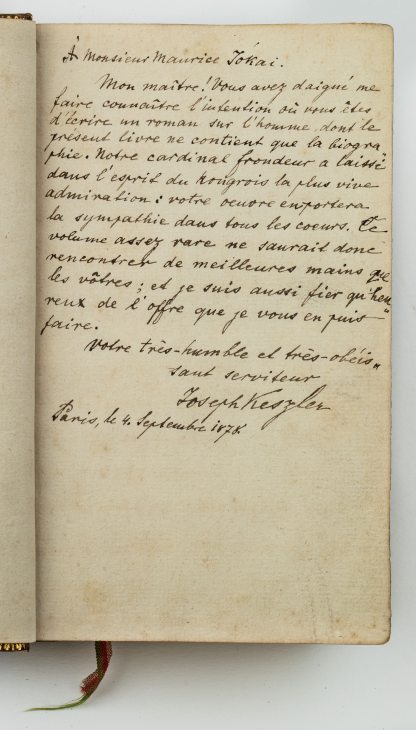 À Monsieur Maurice Jókai.
Mon maître! Vous avez daigné me
faire connaître l'intention où vous êtes
d'écrire un roman sur l'homme, dont le
présent livre ne contient que la biogra
phie. Notre cardinal frondeur a laissé
dans l'esprit du hongrois la plus vive
admiration: votre oeuvre emportera
la sympathie dans tous les coeurs. Ce
volume assez rare ne saurait donc
rencontrer de meilleures mains que
les vôtres; et je suis aussi fier qu'heu„
reux de l'offre que je vous en puis
faire.
Votre très-humble et très-obéis„
sant serviteur
Joseph Keszler
Paris, le 4. Septembre 1878.